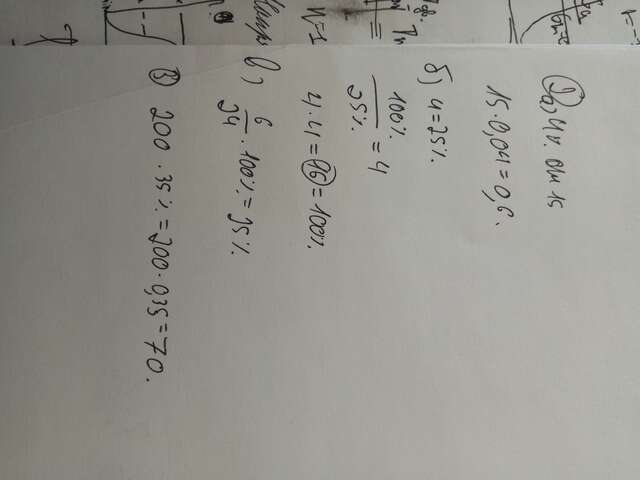 ② а) 4% от 15
15 · 0,04 = 0,6.
б) 4 = 25%.
100%
25%
= 4
4 · 4 = 16 = 100%
в)
6
24
· 100% = 25%
③ 200 · 35% = 200 · 0,35 = 70.
n=1